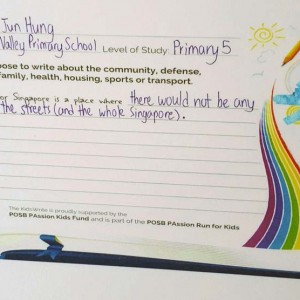 Jun Hung
Valley Primary School Level of Study: Primary 5
ose to write about the community, defense,
family, health, housing, sports or transport.
or Singapore is a place where there would not be any
the streets (and the whole Singapore).
The KidsWrite is proudly supported by the
POSB PAssion Kids Fund and is part of the POSB PAssion Run for Kids